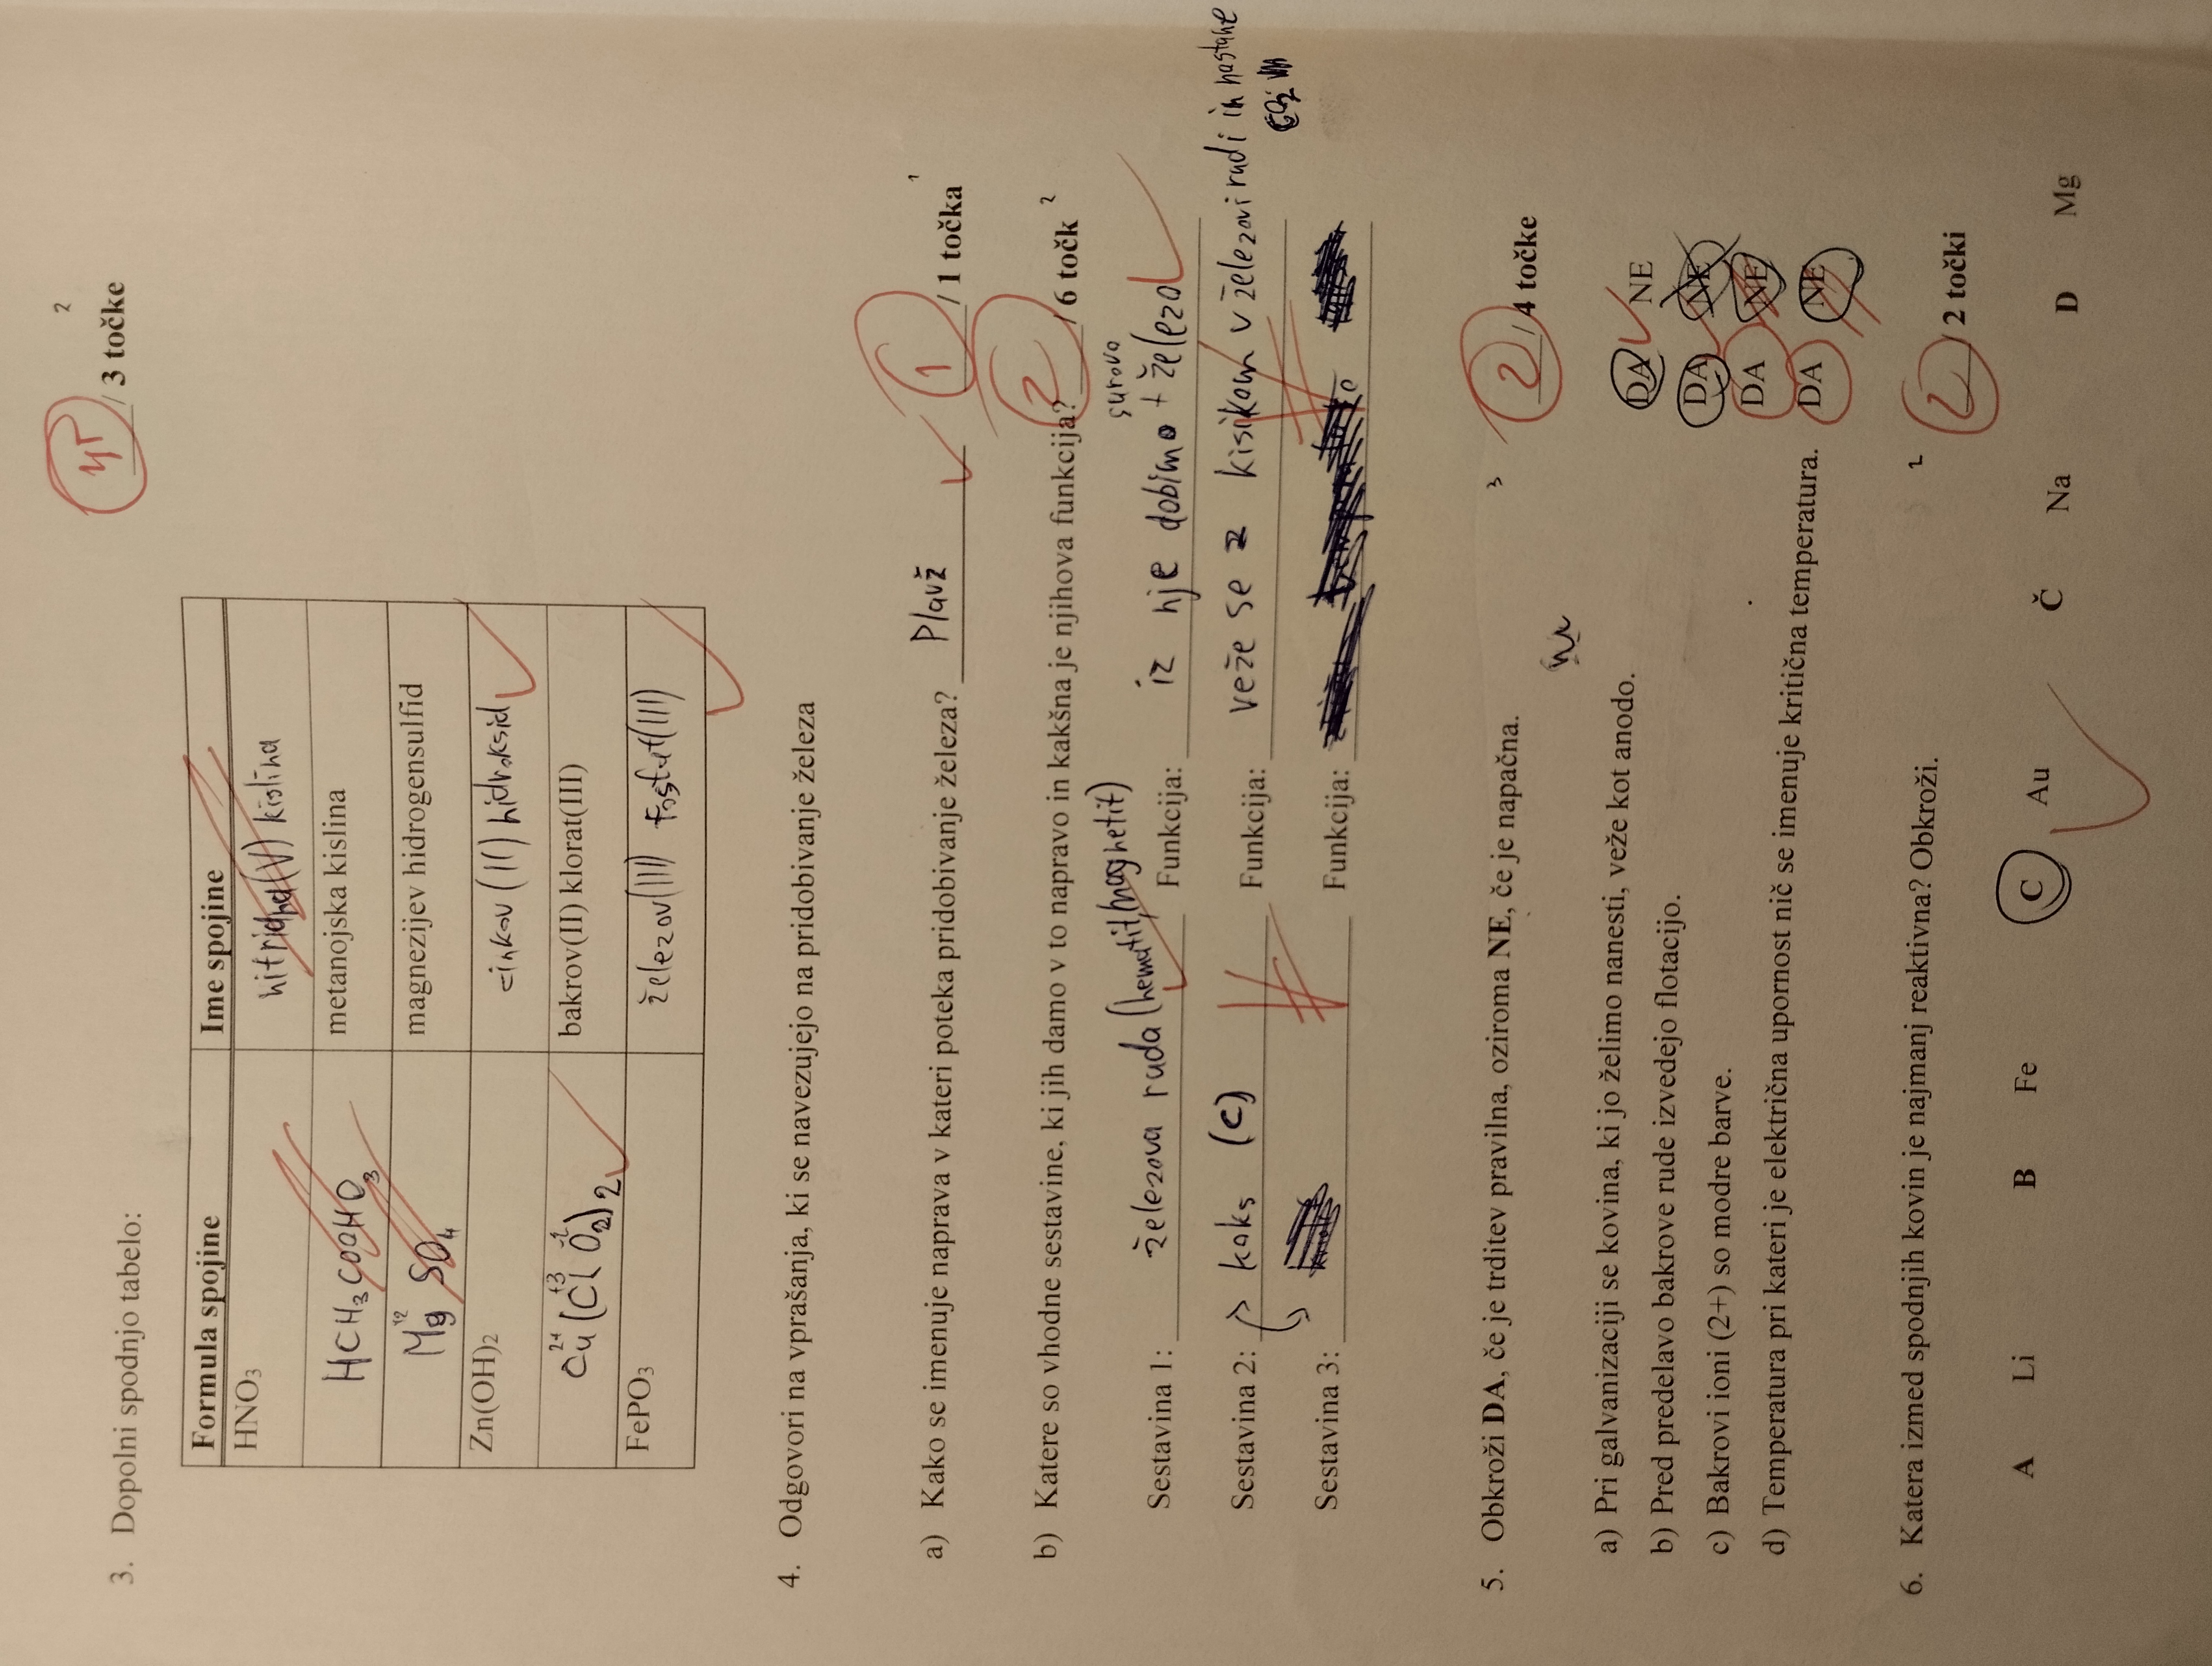 2
1,5
3. Dopolni spodnjo tabelo: / 3 točke
Formula spojine Ime spojine
HNO3 nitridna(V) kislina
HCH3COOHO3 metanojska kislina
Mg+2 SO4 magnezijev hidrogensulfid
Zn(OH)2 cinkov (II) hidroksid
2+ +3 -2
Cu(ClO2)2 bakrov(II) klorat(III)
FePO3 železov(III) fosfat(III)
4. Odgovori na vprašanja, ki se navezujejo na pridobivanje železa
a) Kako se imenuje naprava v kateri poteka pridobivanje železa? Plavž 1 / 1 točka 1
b) Katere so vhodne sestavine, ki jih damo v to napravo in kakšna je njihova funkcija? 2 / 6 točk 2
surovo
Sestavina 1: železova ruda (hematit, magnetit) Funkcija: iz nje dobimo + železo
Sestavina 2: koks (C) Funkcija: veže se z kisikom v železovi rudi in nastane
CO2
Sestavina 3: Funkcija:
5. Obkroži DA, če je trditev pravilna, oziroma NE, če je napačna. 3 2 / 4 točke
a) Pri galvanizaciji se kovina, ki jo želimo nanesti, veže kot anodo. DA NE
b) Pred predelavo bakrove rude izvedejo flotacijo. DA NE
c) Bakrovi ioni (2+) so modre barve. DA NE
d) Temperatura pri kateri je električna upornost nič se imenuje kritična temperatura. DA NE
6. Katera izmed spodnjih kovin je najmanj reaktivna? Obkroži. 2 2 / 2 točki
A Li B Fe C Au Č Na D Mg